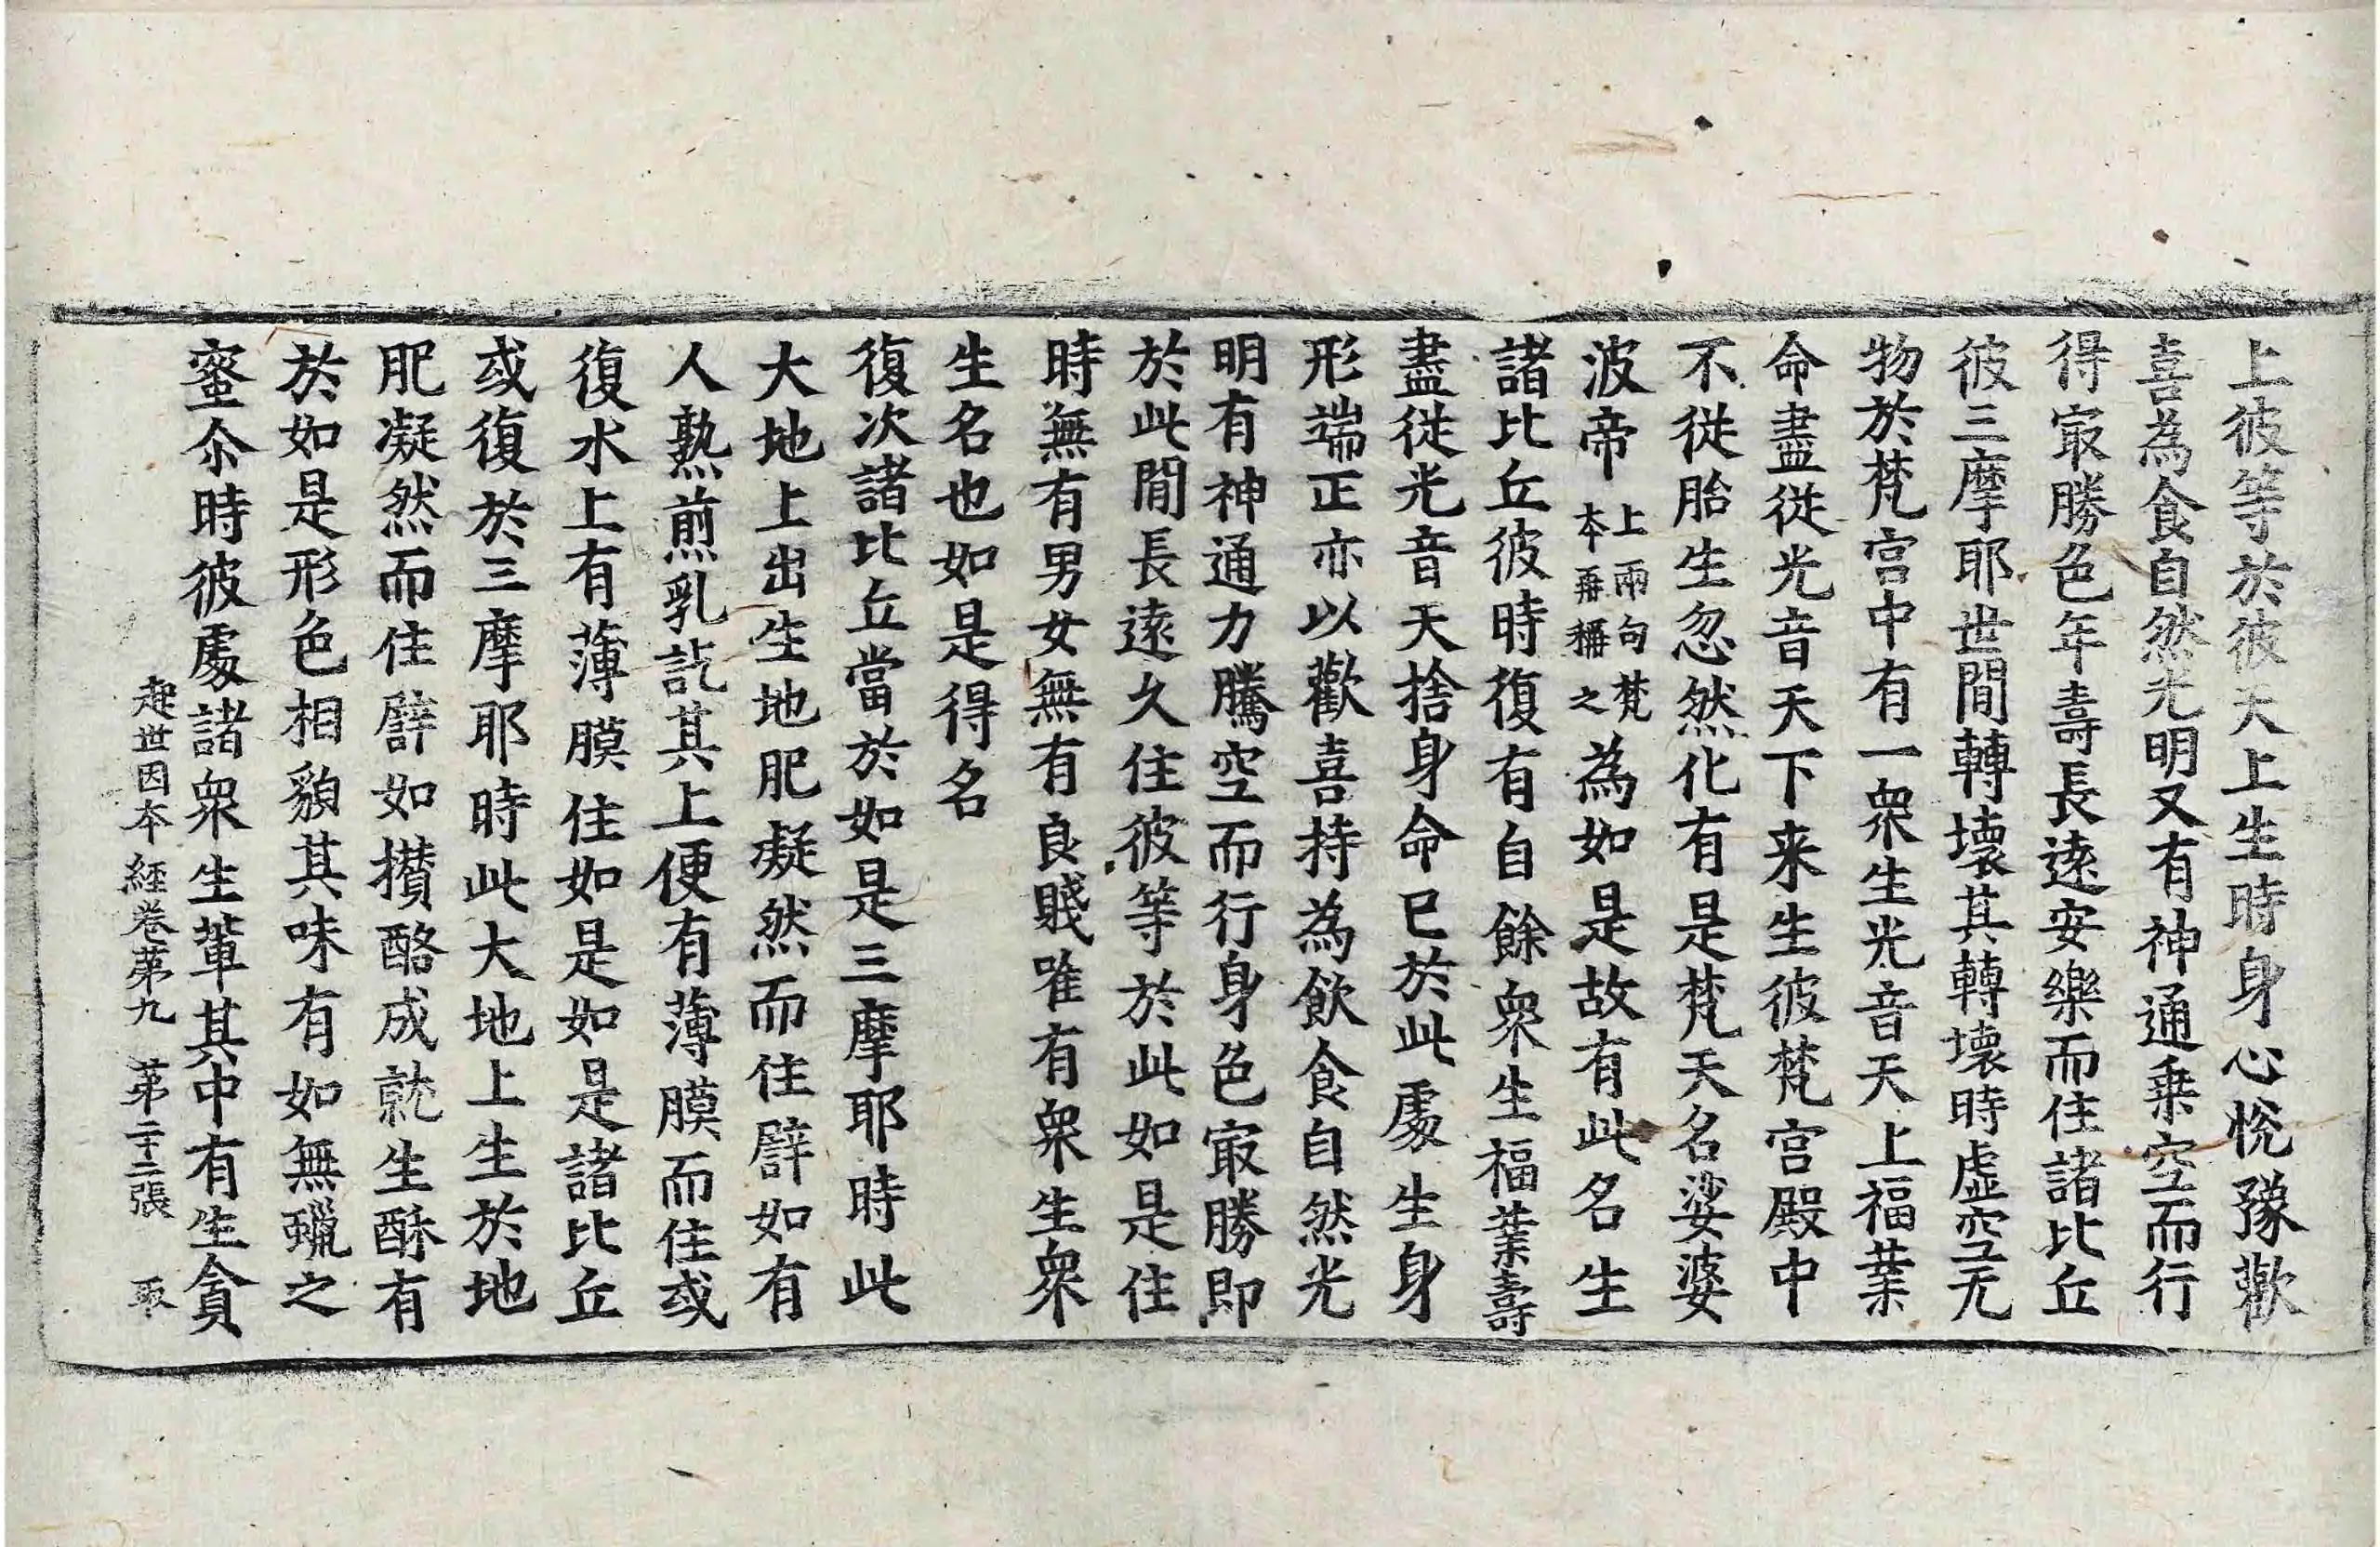 上彼等於彼天上生時身心悅豫歡
喜為食自然光明又有神通乗空而行
得㝡勝色年壽長遠安樂而住諸比丘
彼三摩耶世間轉壞其轉壞時虛空无
物於梵宮中有一衆生光音天上福業
命盡從光音天下来生彼梵宮殿中
不從胎生忽然化有是梵天名娑婆
波帝上兩句梵本再稱之為如是故有此名生
諸比丘彼時復有自餘衆生福業壽
盡從光音天捨身命已於此處生身
形端正亦以歡喜持為飲食自然光
明有神通力騰空而行身色㝡勝即
於此間長遠久住彼等於此如是住
時無有男女無有良賤唯有衆生衆
生名也如是得名
復次諸比丘當於如是三摩耶時此
大地上出生地肥凝然而住譬如有
人熟煎乳訖其上便有薄膜而住或
復水上有薄膜住如是如是諸比丘
或復於三摩耶時此大地上生於地
肥凝然而住譬如攢酪成就生酥有
於如是形色相貌其味有如無蠟之
蜜尒時彼處諸衆生輩其中有生貪
起世因本經卷第九 第二十二張 取